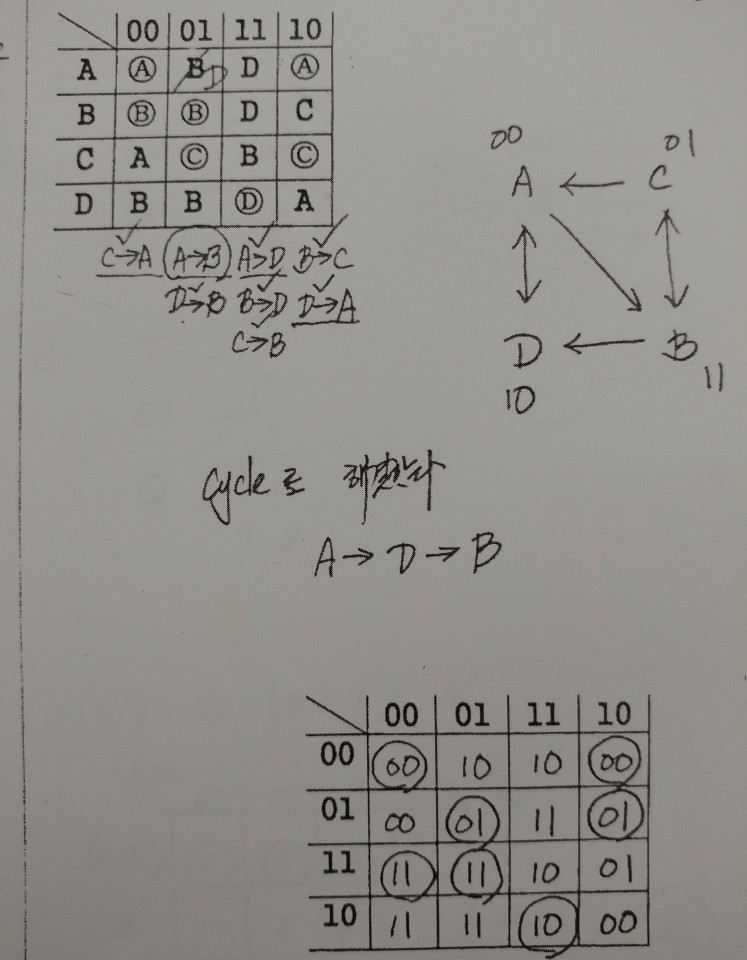 00 01 11 10
A Ⓐ B D D Ⓐ
B Ⓑ Ⓑ D C
C A Ⓒ B Ⓒ
D B B Ⓓ A
C→A A→B A→D B→C
D→B B→D D→A
C→B
00 01
A ← C
D ← B
10 11
cycle로
A → D → B
00 01 11 10
00 00 10 10 00
01 00 01 11 01
11 11 11 10 01
10 11 11 10 00